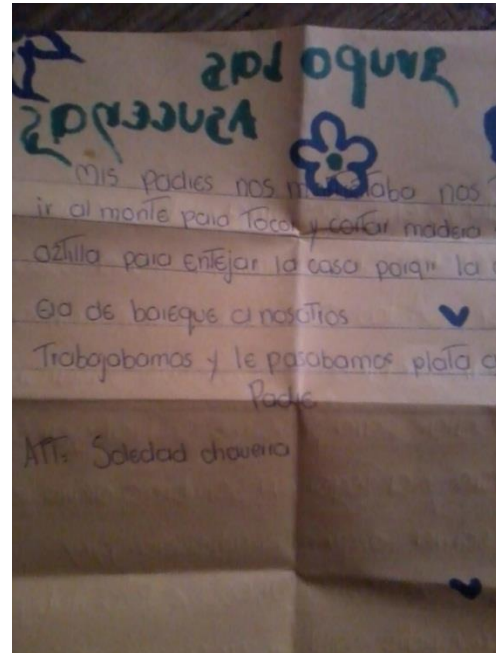 grupo las
Asucenas
Mis padres nos nos
ir al monte para Tocar y cortar madera
aztilla para entejar la casa porq" la
era de bareque a nosotros
Trabajabamos y le pasabamos plata a
Padre
ATT: Soledad chaverra